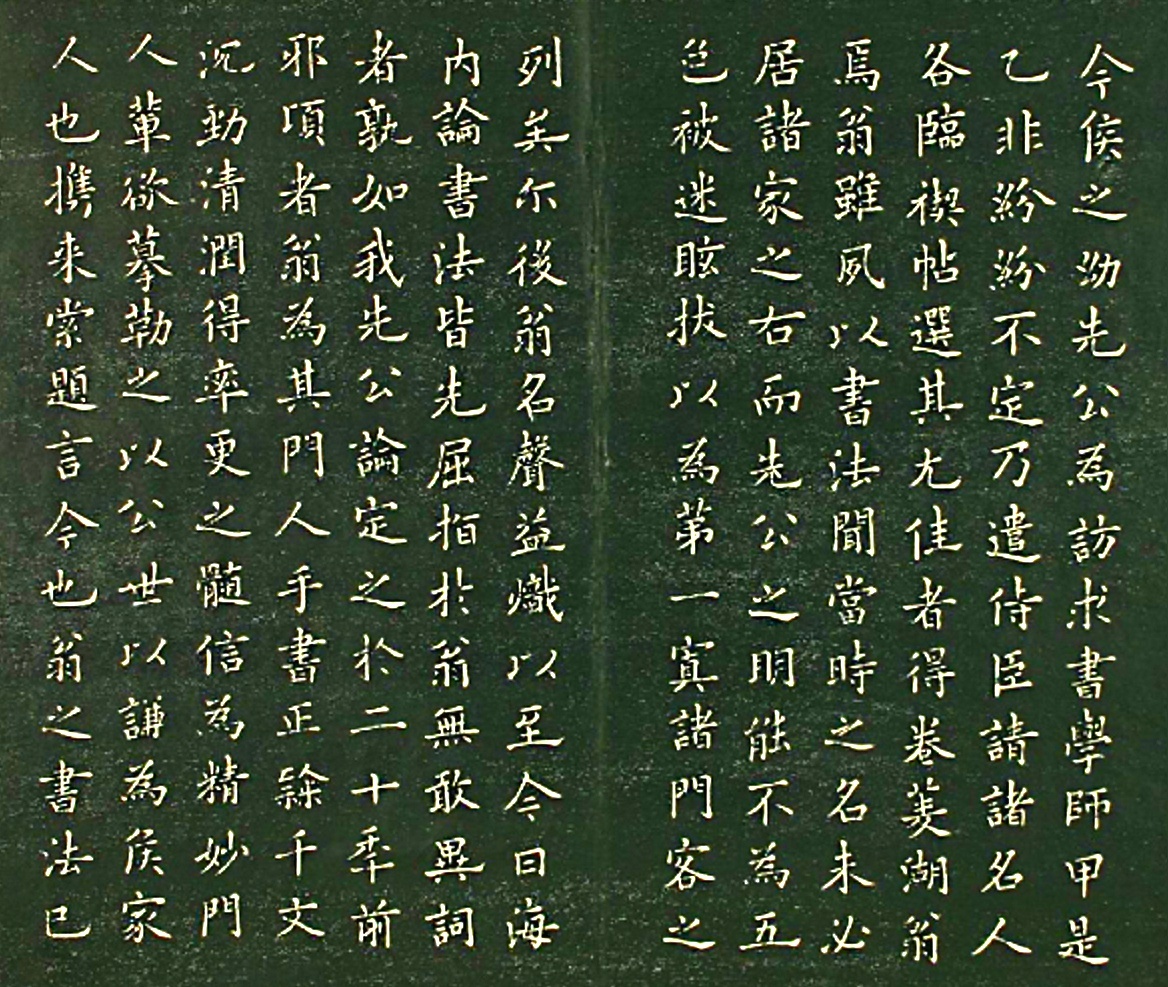 今侯之幼先公為訪求書學師甲是
乙非紛紛不定乃遣侍臣請諸名人
各臨禊帖選其尤佳者得卷菱湖翁
焉翁雖夙以書法聞當時之名未必
居諸家之右而先公之明能不為五
色被迷眩拔以為第一寘諸門客之
列矣尓後翁名聲益熾以至今日海
内論書法皆先屈指於翁無敢異詞
者孰如我先公論定之於二十年前
邪頃者翁為其門人手書正千文
沉勁清潤得率更之髓信為精妙門
人輩欲摹勒之以公世以謙為侯家
人也携来索題言今也翁之書法已